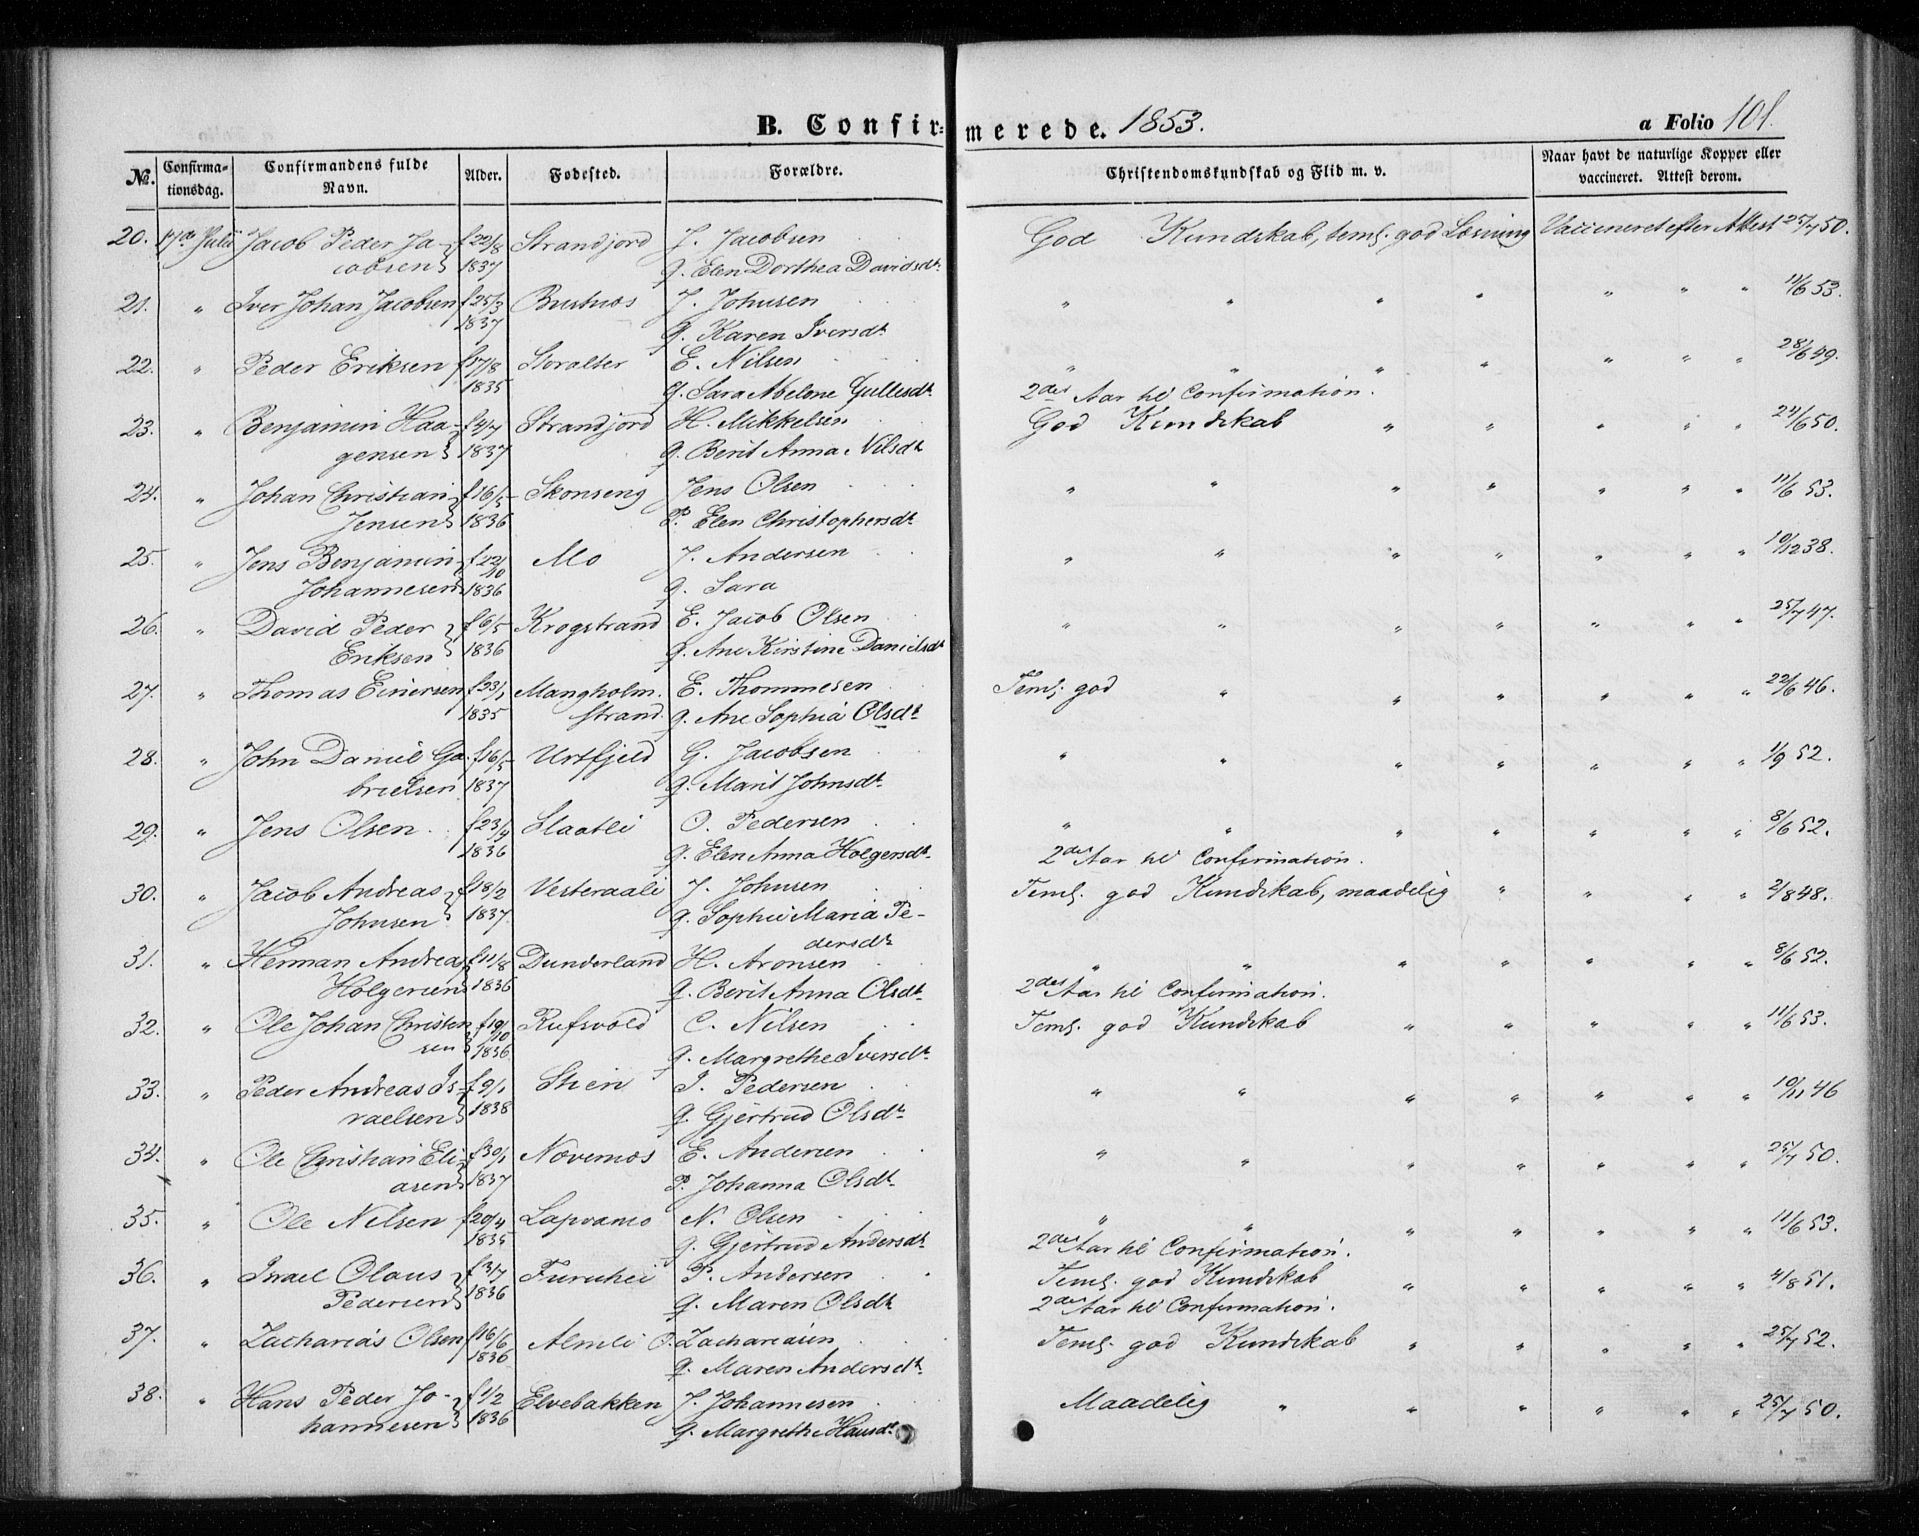 B. Confirmerede. 1853.
a Folio 101.
№. Confirmationsdag. Confirmandens fulde Navn. Alder. Fodested. Forældre. Christendomskundskab og Flid m. v. Naar havt de naturlige Kopper eller vaccineret. Attest derom.
20. 17de Julii Jacob Peder Ja- f 22/8 Strandjord J. Jacobsen God Kundskab, teml. god Læsning Vaccineret efter Attest 25/7 50.
cobsen 1837 g. Elen Dorthea Davidsdr
21. " Iver Johan Jacobsen f 25/3 Bustnæs J. Johnsen " " " " " " " 11/6 53.
1837 g. Karen Iversdr
22. " Peder Eriksen f 17/8 Storalter E. Nilsen " " " " " " " 28/6 49.
1835 g. Sara Abelone Gullesdr 2det Aar til Confirmation.
23. " Benjamin Haa- f 4/7 Strandjord H. Mikkelsen God Kundskab " " " " " 24/6 50.
gensen 1837 g. Berit Anna Nilsdr
24. " Johan Christian f 16/5 Skonseng Jens Olsen " " " " " " " 11/6 53.
Jensen 1836 P. Elen Christophersdr
25. " Jens Benjamin f 22/10 Mo J. Andersen " " " " " " " 10/12 38.
Johannesen 1836 g. Sara
26. " David Peder f 6/5 Krogstrand E. Jacob Olsen " " " " " " " 25/7 47.
Eriksen 1836 g. Ane Kirstine Danielsdr
27. " Thomas Einersen f 23/1 Mangholm- E. Thommesen Teml. god " " " " " " 22/6 46.
1835 strand. g. Ane Sophia Olsdr
28. " John Daniel Ga- f 16/5 Urtfjeld G. Jacobsen " " " " " " " 1/9 52.
brielsen 1837 g. Marit Johnsdr
29. " Jens Olsen f 23/4 Slaatli O. Pedersen " " " " " " " 8/6 52.
1836 g. Elen Anna Holgersdr 2det Aar til Confirmation.
30. " Jacob Andreas f 18/2 Vesteraali J. Johnsen Teml. god Kundskab, maadelig " " " " 2/8 48.
Johnsen 1837. g. Sophie Maria Pe-
dersdr
31. " Herman Andreas f 11/8 Dunderland H. Aronsen " " " " " " " 8/6 52.
Holgersen 1836 g. Berit Anna Olsdr 2det Aar til Confirmation.
32. " Ole Johan Christen f 19/10 Rufsvold C. Nilsen Teml. god Kundskab " " " " " 11/6 53.
sen 1836 g. Margrethe Iversdr
33. " Peder Andreas Is- f 9/1 Stien I. Pedersen " " " " " " " 10/11 46
raelsen 1838 g. Gjertrud Olsdr
34. " Ole Christian Eli- f 30/1 Nævernæs E. Andersen " " " " " " " 25/7 50.
asen 1837 P. Johanna Olsdr
35. " Ole Nilsen f 20/4 Lapvamo N. Olsen " " " " " " " 11/6 53.
1835 g. Gjertrud Andersdr 2det Aar til Confirmation.
36. " Israel Olaus f 3/7 Furuhei P. Andersen Teml. god Kundskab " " " " " 4/8 51.
Pedersen 1836 g. Maren Olsdr 2det Aar til Confirmation.
37. " Zacharias Olsen f 16/6 Almli O. Zachariasen Teml. god Kundskab " " " " " 25/7 52.
1836 g. Maren Andersdr
38. " Hans Peder Jo- f 1/2 Elvebakken J. Johannesen Maadelig " " " " " " 25/7 50.
hannesen 1836 g. Margrethe Hansdr